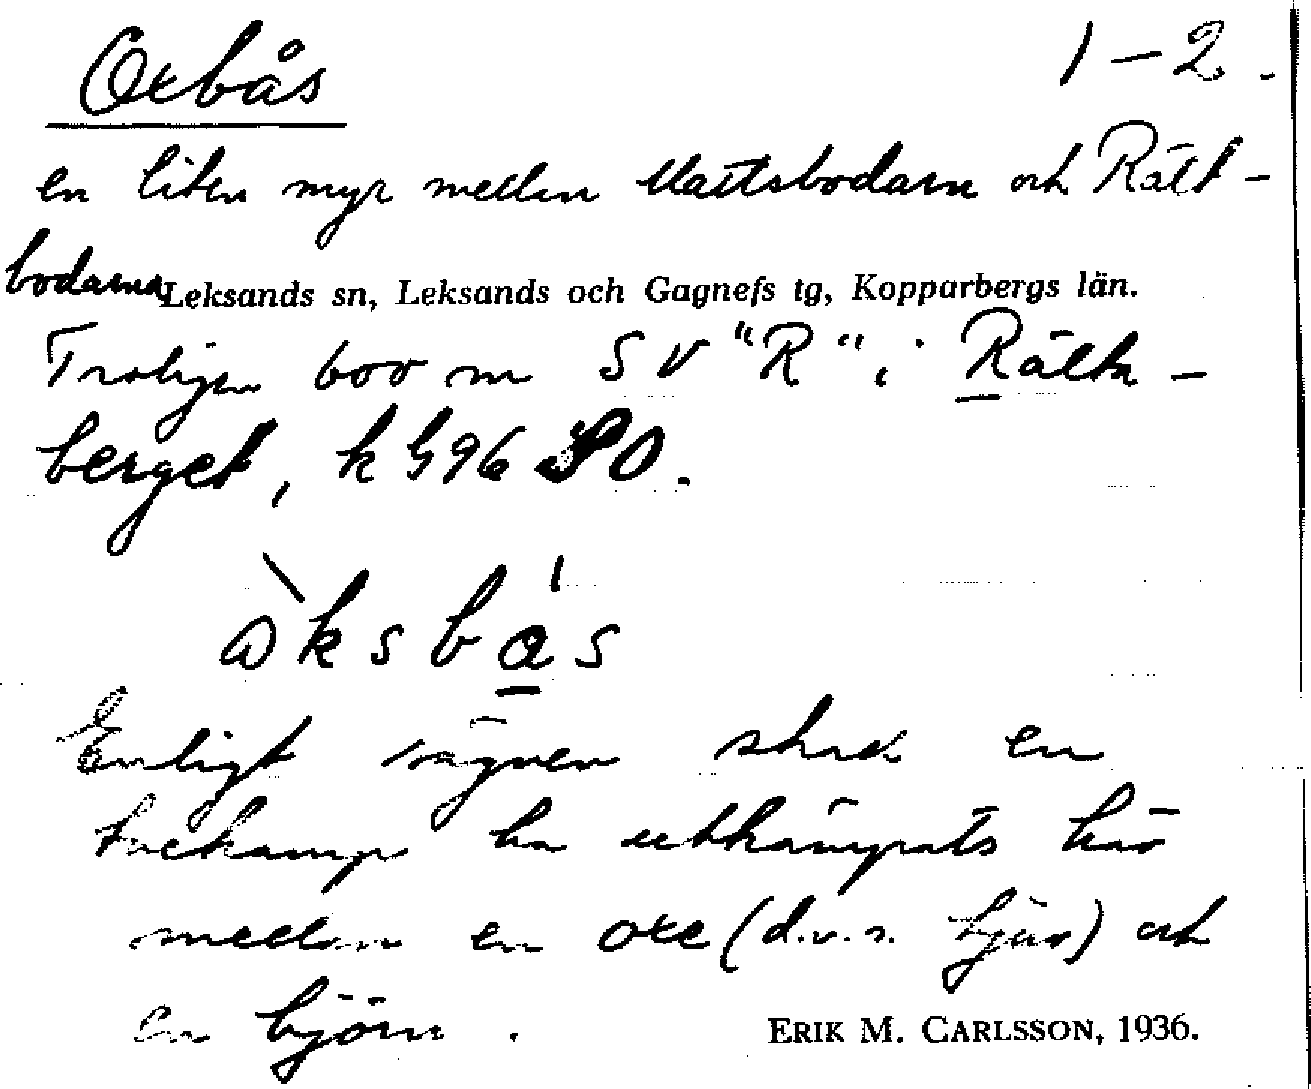 Oxbås 1-2.
en liten myr mellan Mattsbodarna och Rält-
bodarna Leksands sn, Leksands och Gagnefs tg, Kopparbergs län.
Troligen 600 m SV "R" i Rälta-
berget, k 596 SO.
àksbá̱s
Enligt sägnen skall en
tvekamp ha utkämpats här
mellan en oxe (d.v.s. tjur) och
en björn.
ERIK M. CARLSSON, 1936.